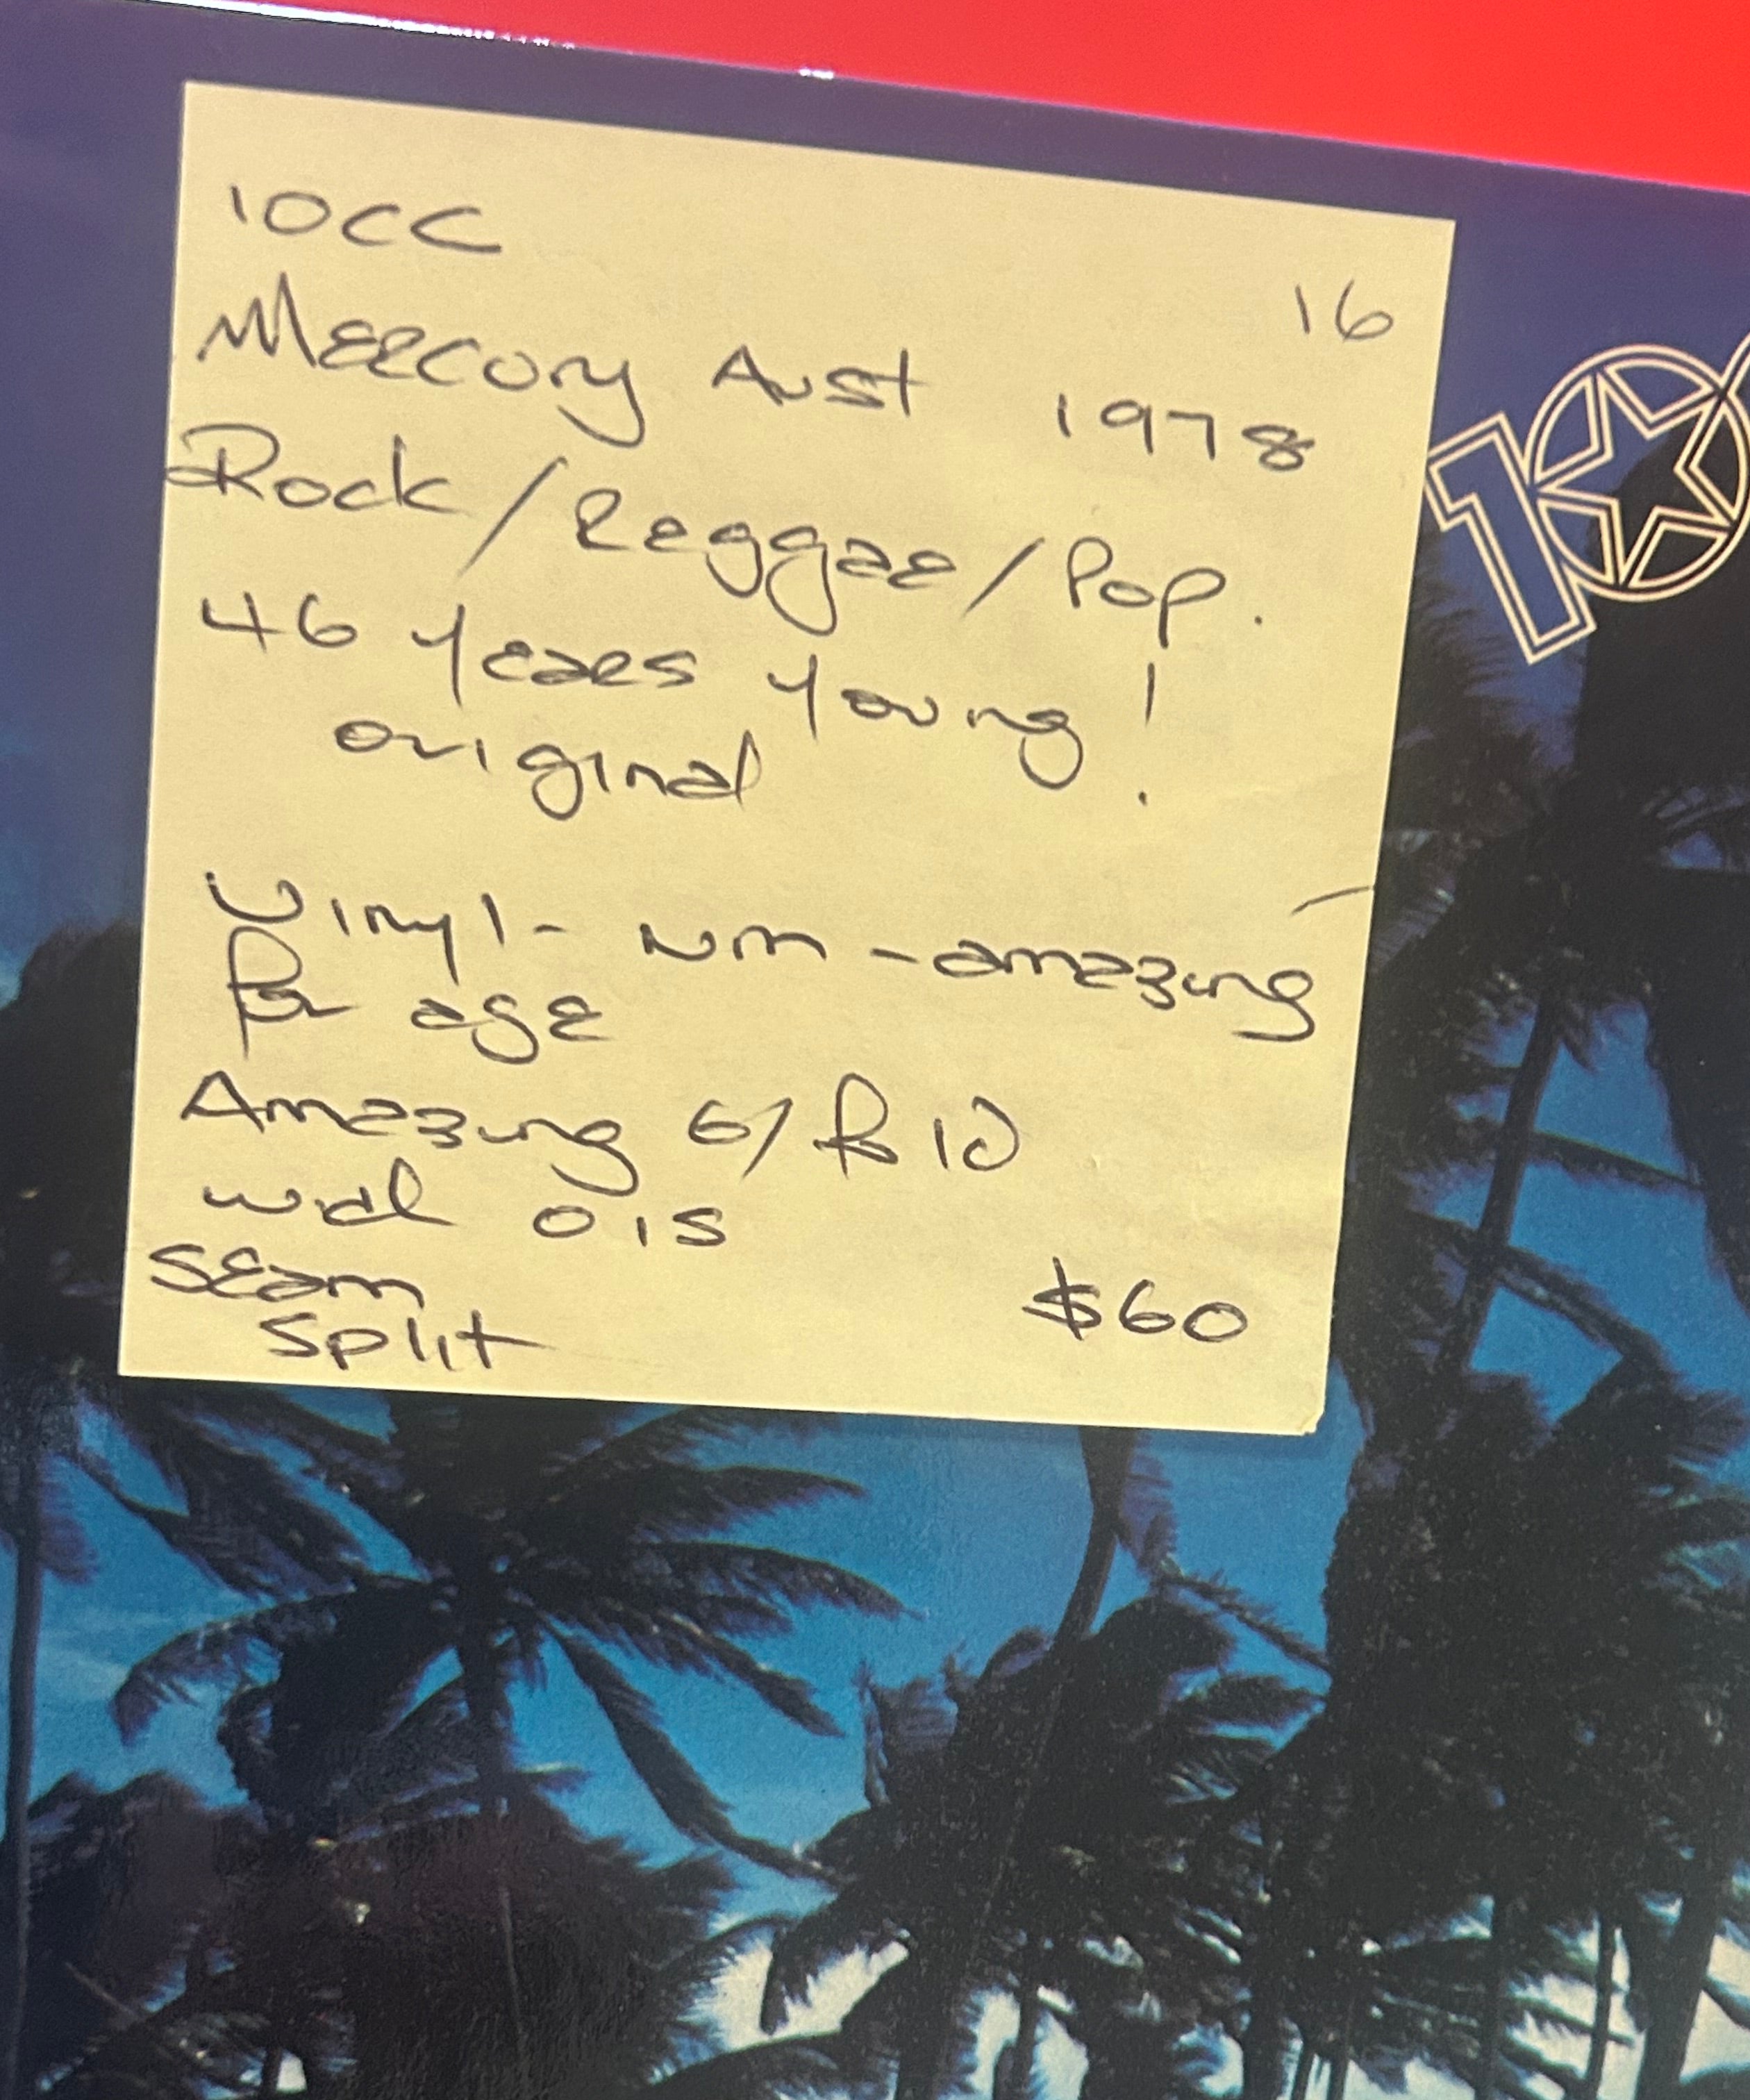 10CC
16
Mercury Aust 1978
Rock/Reggae/Pop.
46 years young!
original
Vinyl - NM - amazing
for age
Amazing G/F
with OIS
seam
split
$60
10